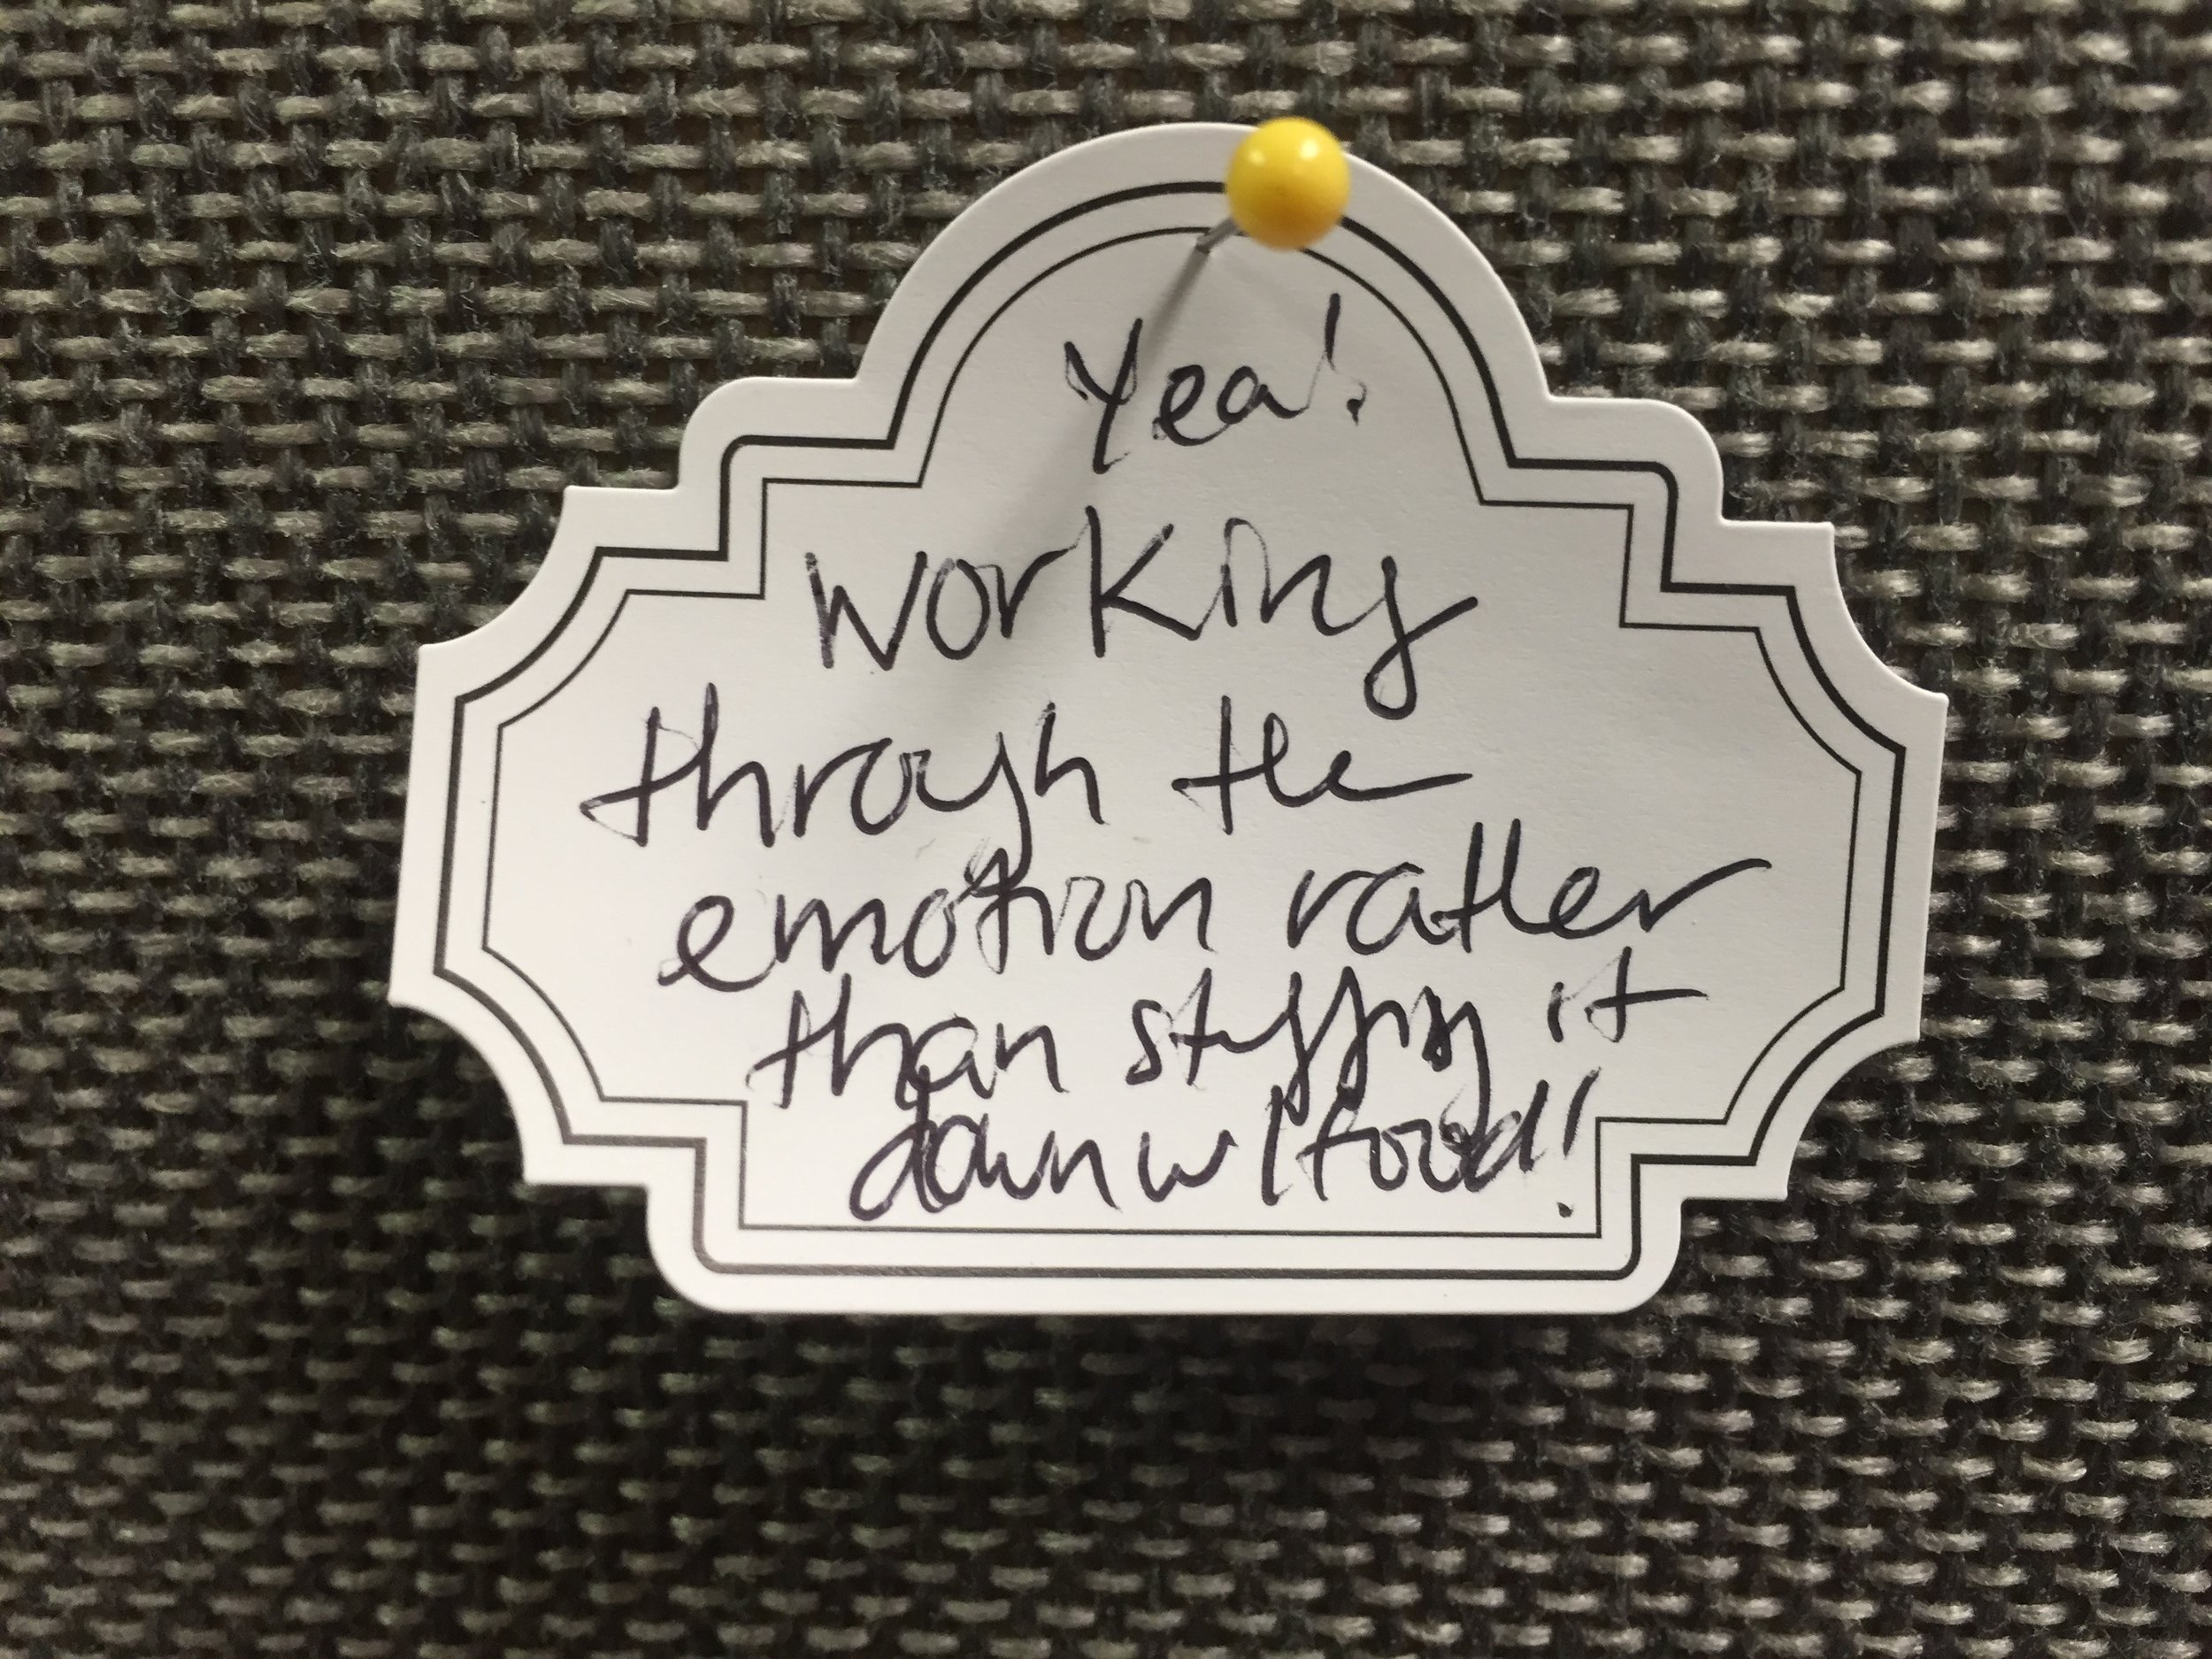 Yea!
Working
through the
emotion rather
than stuffing it
down w/ food!!